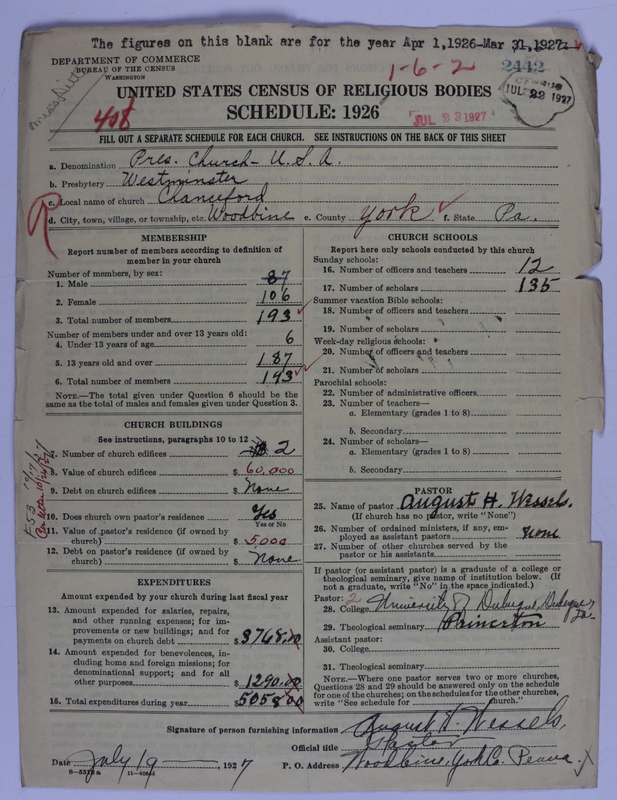 The figures on this blank are for the year Apr 1,1926-Mar 31,1927.
DEPARTMENT OF COMMERCE
BUREAU OF THE CENSUS
WASHINGTON
1-6-2
2442
CENSUS
JUL 22 1927
UNITED STATES CENSUS OF RELIGIOUS BODIES
SCHEDULE: 1926
408
JUL 23 1927
FILL OUT A SEPARATE SCHEDULE FOR EACH CHURCH. SEE INSTRUCTIONS ON THE BACK OF THIS SHEET
a. Denomination Pres. Church - U.S.A.
b. Presbytery Westminster
c. Local name of church Chanceford
d. City, town, village, or township, etc. Woodbine e. County York f. State Pa.
MEMBERSHIP
Report number of members according to definition of
member in your church
Number of members, by sex:
1. Male 87
2. Female 106
3. Total number of members 193
Number of members under and over 13 years old:
4. Under 13 years of age 6
5. 13 years old and over 187
6. Total number of members 193
NOTE.—The total given under Question 6 should be the
same as the total of males and females given under Question 3.
CHURCH BUILDINGS
See instructions, paragraphs 10 to 12
7. Number of church edifices 2
8. Value of church edifices $ 60,000
9. Debt on church edifices $ None
10. Does church own pastor's residence Yes
Yes or No
11. Value of pastor's residence (if owned by
church) $ 5,000
12. Debt on pastor's residence (if owned by
church) $ None
EXPENDITURES
Amount expended by your church during last fiscal year
13. Amount expended for salaries, repairs,
and other running expenses; for im-
provements or new buildings; and for
payments on church debt $ 3768.00
14. Amount expended for benevolences, in-
cluding home and foreign missions; for
denominational support; and for all
other purposes $ 1290.00
15. Total expenditures during year $ 5058.00
CHURCH SCHOOLS
Report here only schools conducted by this church
Sunday schools:
16. Number of officers and teachers 12
17. Number of scholars 135
Summer vacation Bible schools:
18. Number of officers and teachers
19. Number of scholars
Week-day religious schools:
20. Number of officers and teachers
21. Number of scholars
Parochial schools:
22. Number of administrative officers
23. Number of teachers—
a. Elementary (grades 1 to 8)
b. Secondary
24. Number of scholars—
a. Elementary (grades 1 to 8)
b. Secondary
PASTOR
25. Name of pastor August H. Wessel.
(If church has no pastor, write "None")
26. Number of ordained ministers, if any, em-
ployed as assistant pastors None
27. Number of other churches served by the
pastor or his assistants
If pastor (or assistant pastor) is a graduate of a college or
theological seminary, give name of institution below. (If
not a graduate, write "No" in the space indicated.)
Pastor: 2
28. College University of Dubuque, Dubuque, Ia.
29. Theological seminary Princeton
Assistant pastor:
30. College
31. Theological seminary
NOTE.—Where one pastor serves two or more churches,
Questions 28 and 29 should be answered only on the schedule
for one of the churches; on the schedules for the other churches,
write "See schedule for church."
Signature of person furnishing information August H. Wessels,
Official title Pastor
Date July 19, 1927 P. O. Address Woodbine, York Co. Penna.
8-5313a 11-